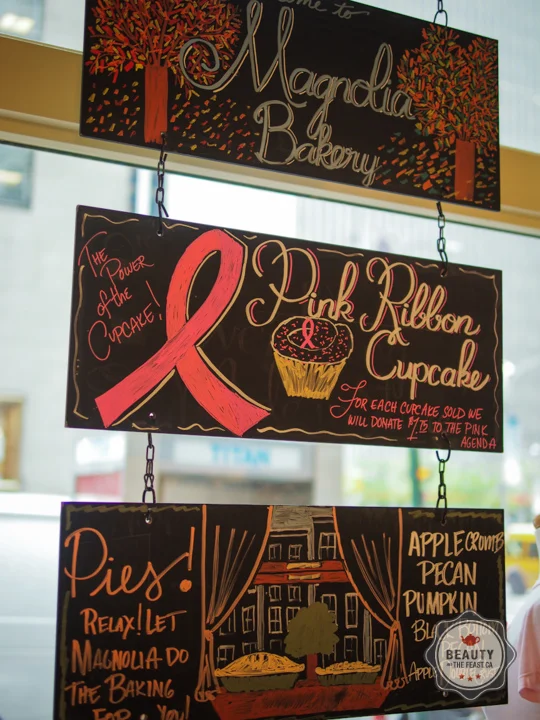 to
Magnolia
Bakery
The
Power
of the
Cupcake!
Pink Ribbon
Cupcake
For each cupcake sold we
will donate $1.75 to the Pink
Agenda
TITAN
Pies!
Relax! Let
Magnolia do
the Baking
For You!
Apple Crumb
Pecan
Pumpkin
Appl
BEAUTY
AND THE FEAST.CA